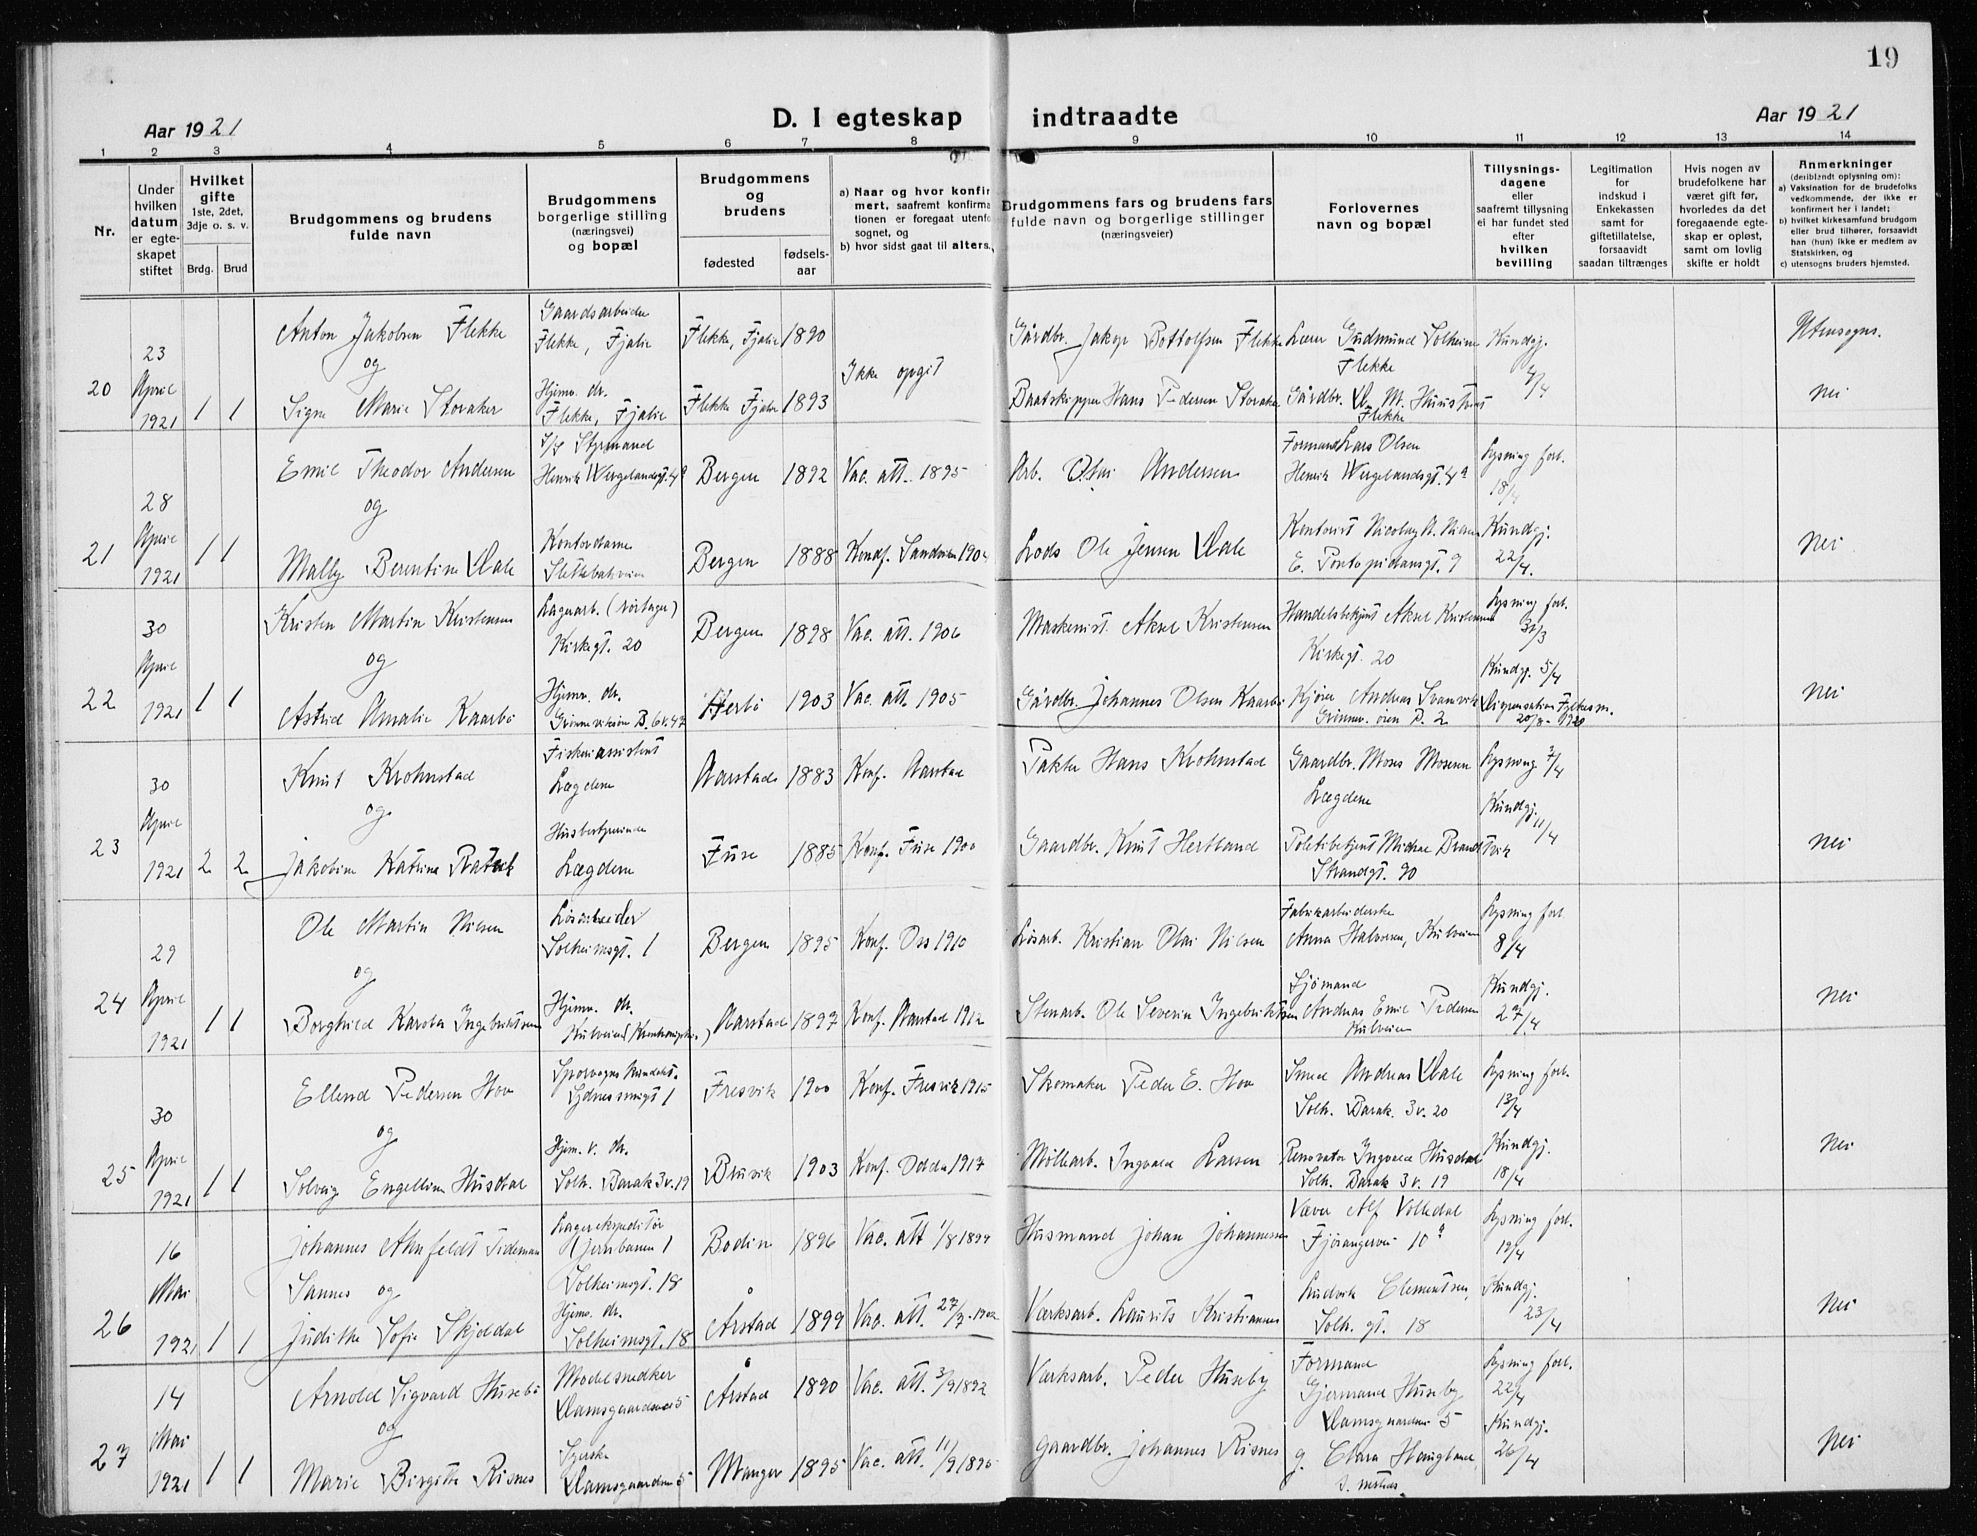 19
Aar 1921
D. I egteskap indtraadte
Aar 1921
1 2 3 4 5 6 7 8 9 10 11 12 13 14
Nr.
Under
hvilken
datum
er egte-
skapet
stiftet
Hvilket
gifte
1ste, 2det,
3dje o. s. v.
Brdg. Brud
Brudgommens og brudens
fulde navn
Brudgommens
borgerlige stilling
(næringsvei)
og bopæl
Brudgommens
og
brudens
fødested
fødsels-
aar
a) Naar og hvor konfir
mert, saafremt konfirma
tionen er foregaat utenfo
sognet, og
b) hvor sidst gaat til alters.
Brudgommens fars og brudens fars
fulde navn og borgerlige stillinger
(næringsveier)
Forlovernes
navn og bopæl
Tillysnings-
dagene
eller
saafremt tillysning
ei har fundet sted
efter
hvilken
bevilling
Legitimation
for
indskud i
Enkekassen
samt for
giftetillatelse,
forsaavidt
saadan tiltrænges
Hvis nogen av
brudefolkene har
været gift før,
hvorledes da det
foregaaende egte-
skap er opløst,
samt om lovlig
skifte er holdt
Anmerkninger
(deriblandt oplysning om):
a) Vaksination for de brudefolks
vedkommende, der ikke er
konfirmert her i landet;
b) hvilket kirkesamfund brudgom
eller brud tilhører, forsaavidt
han (hun) ikke er medlem av
Statskirken, og
c) utensogns bruders hjemsted.
20
23
April
1921
1 1
Anton Jakobsen Flekke
og
Signe Marie Storaker
Gaardsarbeider
Flekke, Fjalir
Hjemv. dr.
Flekke, Fjalir
Flekke, Fjalir 1890
Flekke Fjaler 1893
Ikke opgit
Gårdbr. Jakop Bottolfsen Flekke
Baatskipper Hans Pedersen Storaker
Lærer Gudmund Solheim
Flekke
Gårdbr. D. M.
Flekke
Kundgj.
4/4
Utensogns.
Nei
21
28
April
1921
1 1
Emil Theodor Andersen
og
Mally Berentine Dale
Styrmand
Henrik Wergelandsgt. 4a
Kontordame
Slettebakveien
Bergen 1892
Bergen 1888
Vac. att. 1895
Konf. Sandviken
Arb. Olai Andersen
Lods Ole Jensen Dale
Formand Lars Olsen
Henrik Wergelandsgt. 4a
Kontorist Nicolay
E. Pontopidansgt. 9
Lysning forl.
18/4
Kundgj.
22/4.
Nei
22
30
April
1921
1 1
Kristen Martin Kristensen
og
Astrid Amalie Kaarbø
Lagerarb.
Kirkegt. 20
Hjemv. dr.
Bergen 1898
Herbø 1903
Vac. att. 1906
Vac. att. 1905
Maskinist. Aksel Kristensen
Gårdbr. Johannes Olsen Kaarbø
Handelsbetjent Aksel Kristensen
Kirkegt. 20
Kjører Andreas Svanvik
Lysning forl.
Kundgj. 5/4
Nei
23
30
April
1921
2 2
Knut Krohnstad
og
Jakobine Katrine
Fiskeriassistent
Lægdene
Husbestyrerinde
Lægdene
Aarstad 1883
Fuse 1885
Konf. Aarstad
Konf. Fuse 1900
Hans Krohnstad
Gaardbr. Knut Hertland
Gaardbr. Mons Monsen
Lægdene
Politibetjent Mikkel Brandtvik
Strandgt. 90
Lysning 7/4
Kundgj.
11/4
Nei
24
29
April
1921
1 1
Ole Martin Nilsen
og
Borghild Karoline Ingebriktsen
Løsarbeider
Solheimsgt. 1
Hjemv. dr.
Bergen 1895
Aarstad 1897
Konf. Oss 1910
Konf. Aarstad 1912
Løsarb. Kristian Olai Nilsen
Stenarb. Ole Severin Ingebriktsen
Fabrikarbeiderske
Anna Halvorsen,
Sjømand
Andreas Emil Pedersen
Lysning forl
8/4
Kundgj.
27/4
Nei
25
30
April
1921
1 1
Ellend Pedersen Hov
og
Solveig Engelline Husdal
Hjem. v. dr.
Solh. Barak 3 v. 19
Fresvik 1900
Bruvik 1903
Konf. Fresvik 1915
Konf. Odda 1917
Skomaker Peder E. Hov
Møllearb. Ingvald Larsen
Smed Andreas Dale
Solh. Barak. 3 v. 20
Renovatør Ingvald Husdal
Solh. Barak 3 v. 19
Lysning forl.
13/4
Kundgj.
18/4
Nei
26
16
Mai
1921
1 1
Johannes Ahnfeldt Tideman
Sannes og
Judithe Sofie Skjoldal
Lagerekspeditør
(Jernbanen)
Solheimsgt. 18
Hjemv. dr.
Solheimsgt. 18
Bodin 1896
Årstad 1899
Vac. att 1/8 1897
Vac. att. 27/7. 1902
Husmand Johan Johannessen
Værksarb. Laurits Kristiansen
Væver Alf Volledal
Fjøsangervei 10a
Ludvik Clementsen,
Solh. gt. 18
Lysning forl.
19/4
Kundgj.
23/4
Nei
27
14
Mai
1921
1 1
Arnold Sigvard Husebø
og
Marie Birgitte Risnes
Modelsnedker
Damsgaardsvei 5
Syerske
Damsgaardsvei 5
Årstad 1890
Manger 1895
Vac. att. 3/9 1892
Vac. att. 11/9 1895
Værksarb. Peder Huseby
Gaardbr. Johannes Risnes
Formand
Gjermund Huseby
Damsgaardsvei 5
g. Clara Haugland,
Lysning forl.
22/4
Kundgj.
26/4
Nei